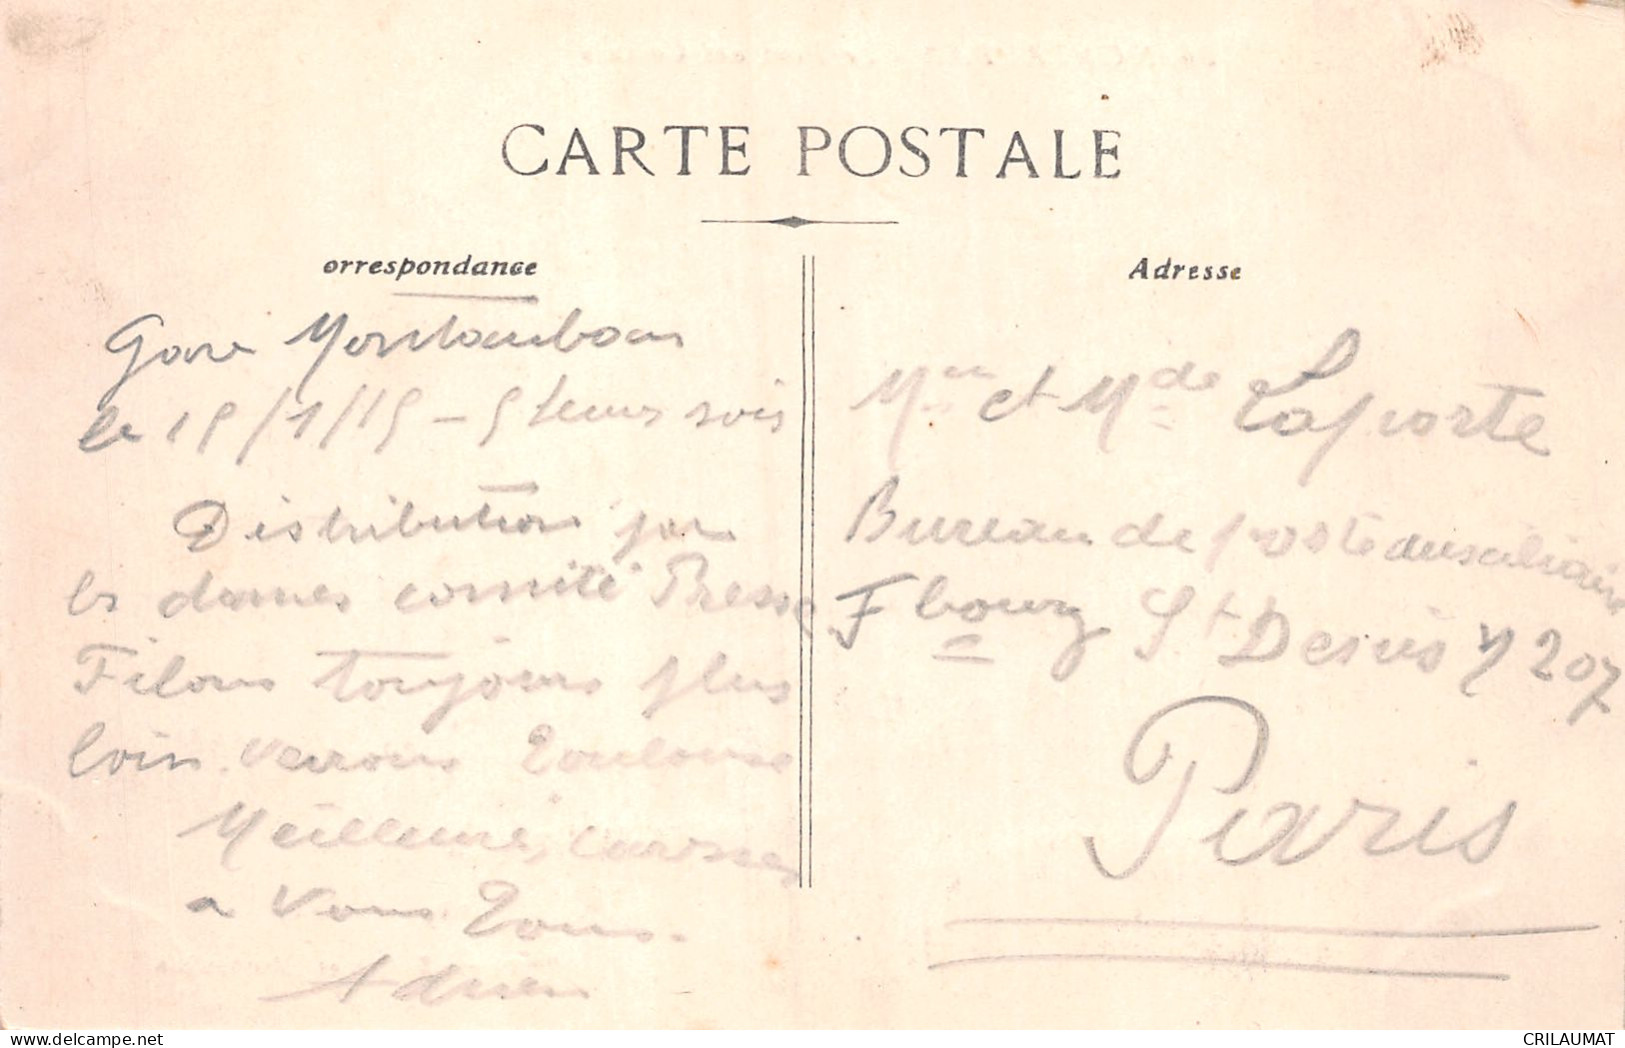 CARTE POSTALE
orrespondance
Gare Montauban
le 15/1/15 – 5 heures soir
Distribution par
les dames comité Presse
Filons toujours plus
loin. Verrons Toulouse
Meilleures caresses
a Vous Tous.
Adrien
Adresse
Mr et Mde Laporte
Bureau de poste auxiliaire
Fbourg St Denis 207
Paris
CRILAUMAT